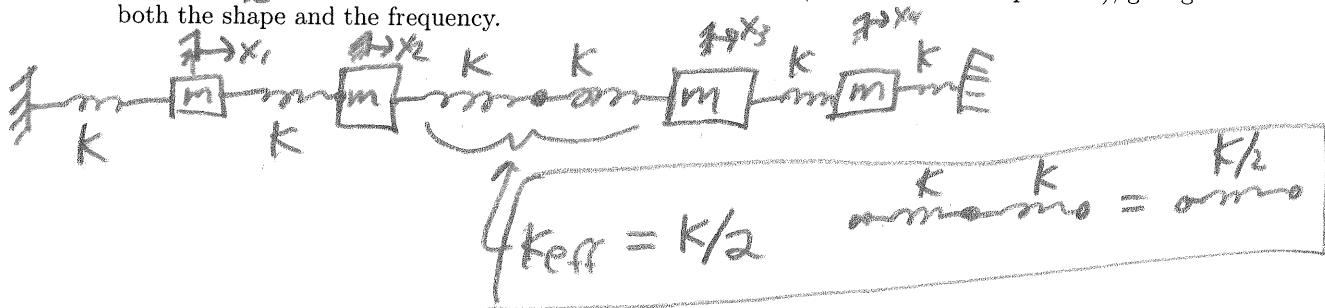 both the shape and the frequency.
x₁ x₂ K K x₃ K x₄ K
m m m m
K K
Keff = K/2 K K = K/2